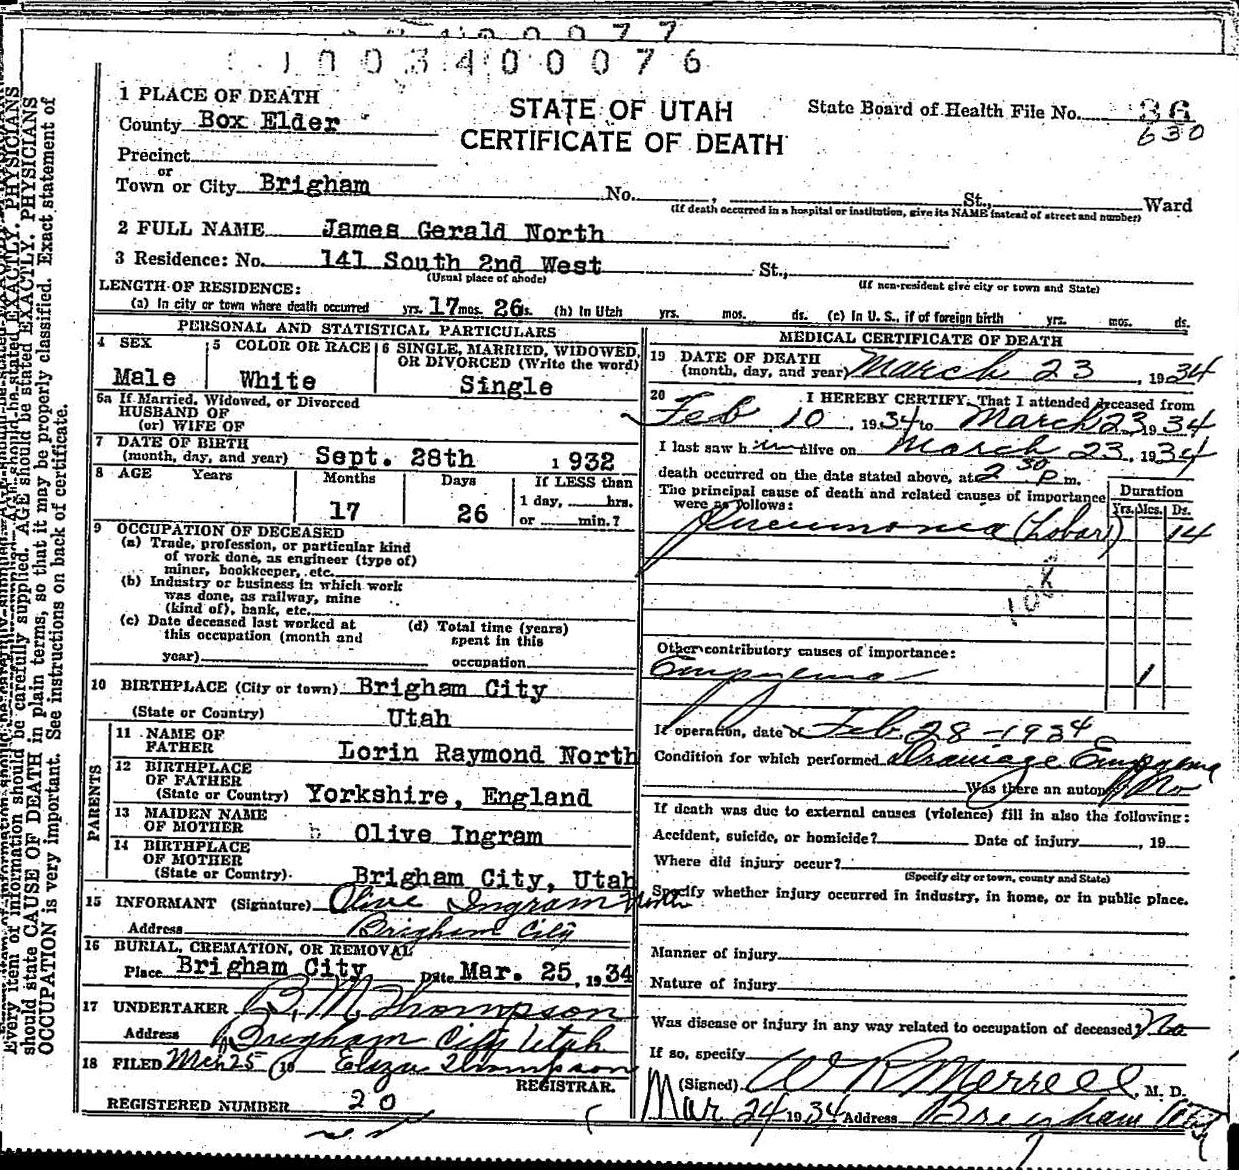 1003400076
STATE OF UTAH
CERTIFICATE OF DEATH
State Board of Health File No. 36
630
1 PLACE OF DEATH
County Box Elder
Precinct
or
Town or City Brigham No. , St., Ward
(If death occurred in a hospital or institution, give its NAME instead of street and number)
2 FULL NAME James Gerald North
3 Residence: No. 141 South 2nd West St.,
(Usual place of abode) (If non-resident give city or town and State)
LENGTH OF RESIDENCE:
(a) In city or town where death occurred yrs. 17 mos. 26 ds. (b) In Utah yrs. mos. ds. (c) In U. S., if of foreign birth yrs. mos. ds.
PERSONAL AND STATISTICAL PARTICULARS
4 SEX
Male
5 COLOR OR RACE
White
6 SINGLE, MARRIED, WIDOWED,
OR DIVORCED (Write the word)
Single
6a If Married, Widowed, or Divorced
HUSBAND OF
(or) WIFE OF
7 DATE OF BIRTH
(month, day, and year) Sept. 28th 1932
8 AGE Years Months Days If LESS than
17 26 1 day, hrs.
or min.?
9 OCCUPATION OF DECEASED
(a) Trade, profession, or particular kind
of work done, as engineer (type of)
miner, bookkeeper, etc.
(b) Industry or business in which work
was done, as railway, mine
(kind of), bank, etc.
(c) Date deceased last worked at
this occupation (month and
year)
(d) Total time (years)
spent in this
occupation
10 BIRTHPLACE (City or town) Brigham City
(State or Country) Utah
PARENTS
11 NAME OF
FATHER Lorin Raymond North
12 BIRTHPLACE
OF FATHER
(State or Country) Yorkshire, England
13 MAIDEN NAME
OF MOTHER Olive Ingram
14 BIRTHPLACE
OF MOTHER
(State or Country) Brigham City, Utah
15 INFORMANT (Signature) Olive Ingram North
Address Brigham City
16 BURIAL, CREMATION, OR REMOVAL
Place Brigham City Date Mar. 25, 1934
17 UNDERTAKER B. M. Thompson
Address Brigham City Utah
18 FILED Mch 25 19 Eliza Thompson
REGISTRAR.
REGISTERED NUMBER 20
MEDICAL CERTIFICATE OF DEATH
19 DATE OF DEATH
(month, day, and year) March 23, 1934
20 I HEREBY CERTIFY, That I attended deceased from
Feb 10, 1934 to March 23, 1934
I last saw him alive on March 23, 1934
death occurred on the date stated above, at 2 30 P m.
The principal cause of death and related causes of importance
were as follows:
Duration
Yrs. Mos. Ds.
Pneumonia (Lobar) 14
108
Other contributory causes of importance:
Empyema 1
If operation, date of Feb 28 - 1934
Condition for which performed Drainage Empyema
Was there an autopsy No
If death was due to external causes (violence) fill in also the following:
Accident, suicide, or homicide? Date of injury , 19
Where did injury occur?
(Specify city or town, county and State)
Specify whether injury occurred in industry, in home, or in public place.
Manner of injury
Nature of injury
Was disease or injury in any way related to occupation of deceased? No
If so, specify
(Signed) W R Merrell, M. D.
Mar 24 1934 Address Brigham City
Every item of information should be carefully supplied. AGE should be stated EXACTLY. PHYSICIANS
should state CAUSE OF DEATH in plain terms, so that it may be properly classified. Exact statement of
OCCUPATION is very important. See instructions on back of certificate.